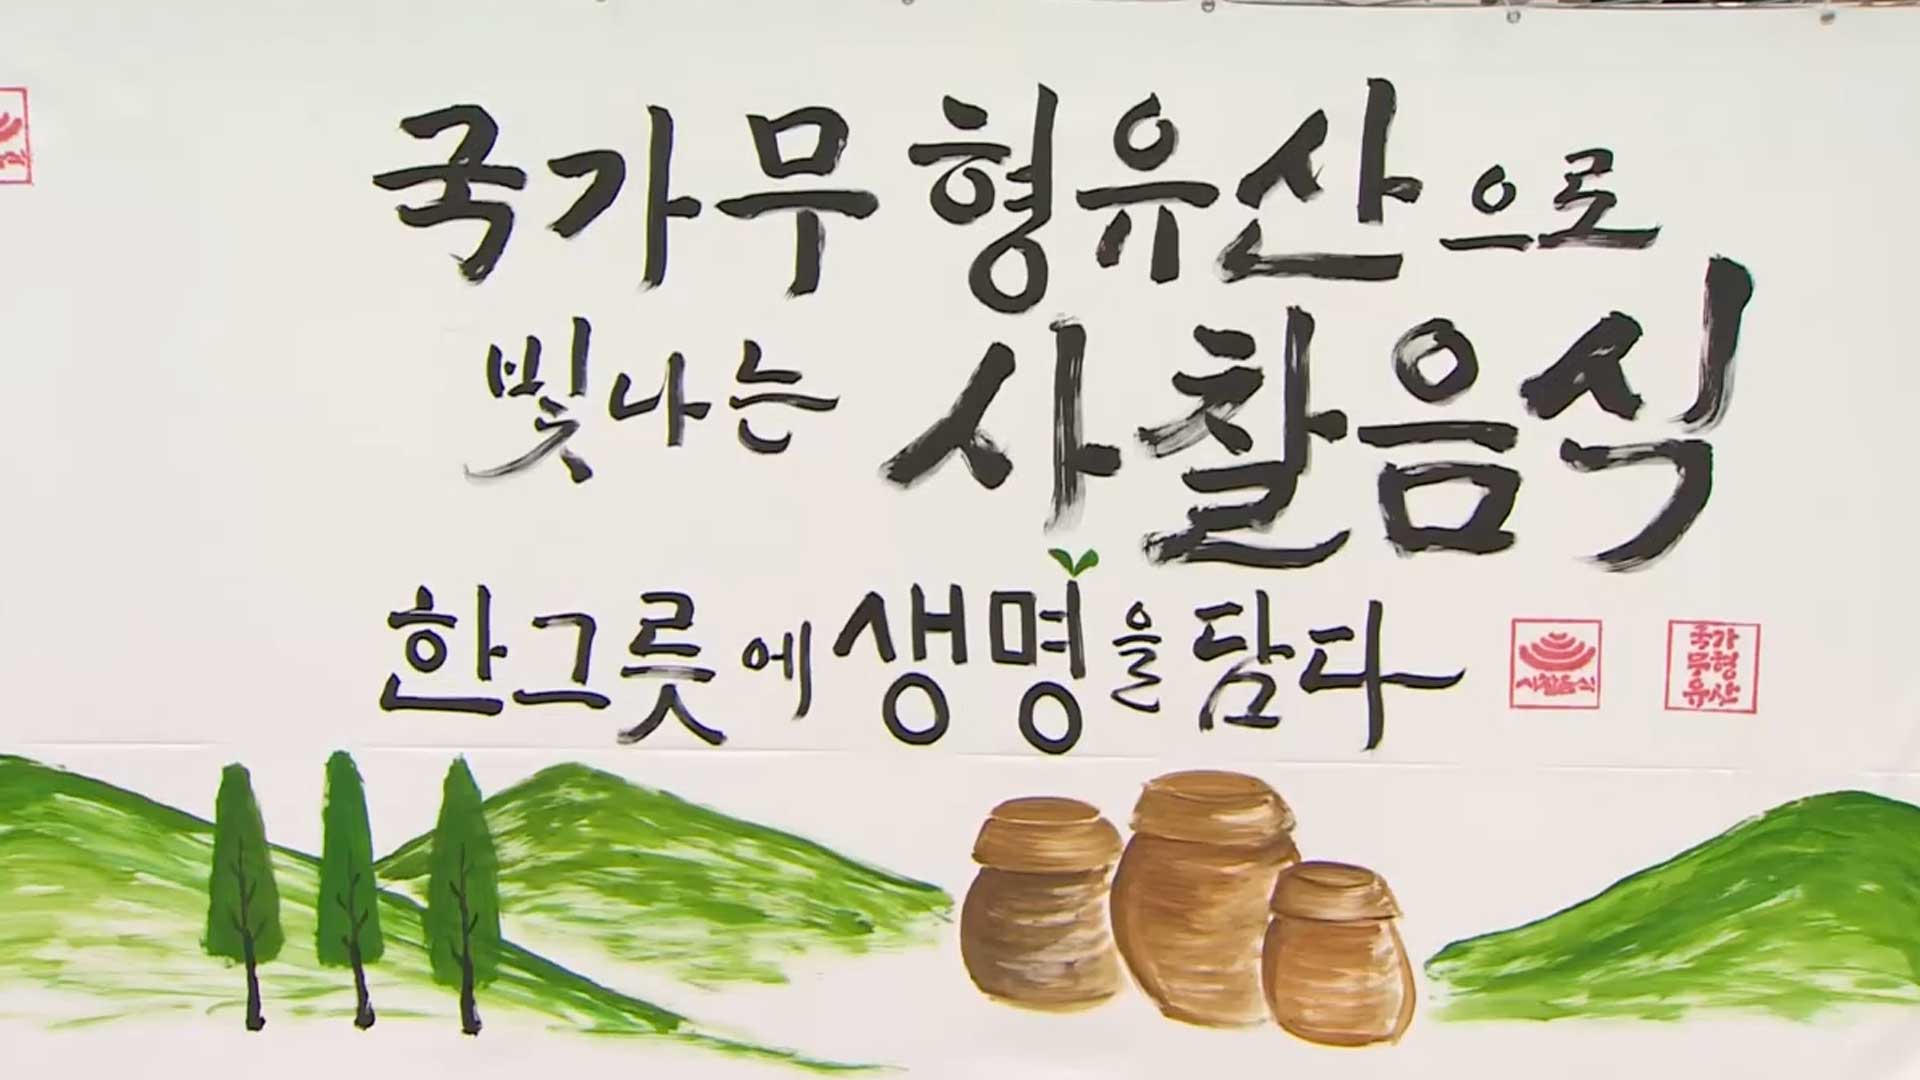 국가무형유산으로
빛나는 사찰음식
한그릇에 생명을 담다
사찰음식
국가
무형
유산